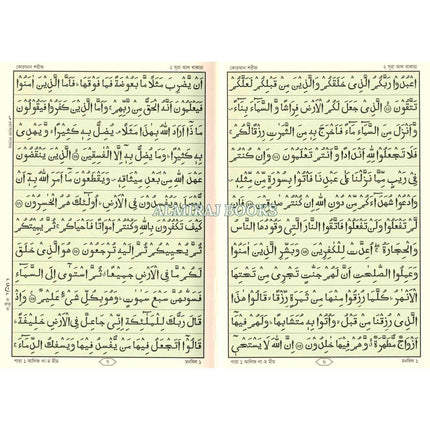 কোরআন শরীফ ২ সূরা আল বাকারা
اعْبُدُوْا رَبَّكُمُ الَّذِیْ خَلَقَكُمْ وَالَّذِیْنَ مِنْ قَبْلِكُمْ لَعَلَّكُمْ
تَتَّقُوْنَ ۝ الَّذِیْ جَعَلَ لَكُمُ الْاَرْضَ فِرَاشًا وَّالسَّمَآءَ بِنَآءً
وَّاَنْزَلَ مِنَ السَّمَآءِ مَآءً فَاَخْرَجَ بِهٖ مِنَ الثَّمَرٰتِ رِزْقًا لَّكُمْ ۚ
فَلَا تَجْعَلُوْا لِلّٰهِ اَنْدَادًا وَّاَنْتُمْ تَعْلَمُوْنَ ۝ وَاِنْ كُنْتُمْ
فِیْ رَیْبٍ مِّمَّا نَزَّلْنَا عَلٰی عَبْدِنَا فَاْتُوْا بِسُوْرَةٍ مِّنْ مِّثْلِهٖ ۪
وَادْعُوْا شُهَدَآءَكُمْ مِّنْ دُوْنِ اللّٰهِ اِنْ كُنْتُمْ صٰدِقِیْنَ ۝ فَاِنْ
لَّمْ تَفْعَلُوْا وَلَنْ تَفْعَلُوْا فَاتَّقُوا النَّارَ الَّتِیْ وَقُوْدُهَا النَّاسُ
وَالْحِجَارَةُ ۖ اُعِدَّتْ لِلْكٰفِرِیْنَ ۝ وَبَشِّرِ الَّذِیْنَ اٰمَنُوْا
وَعَمِلُوا الصّٰلِحٰتِ اَنَّ لَهُمْ جَنّٰتٍ تَجْرِیْ مِنْ تَحْتِهَا
الْاَنْهٰرُ ؕ كُلَّمَا رُزِقُوْا مِنْهَا مِنْ ثَمَرَةٍ رِّزْقًا ۙ قَالُوْا هٰذَا
الَّذِیْ رُزِقْنَا مِنْ قَبْلُ ۙ وَاُتُوْا بِهٖ مُتَشَابِهًا ؕ وَلَهُمْ فِیْهَاۤ
اَزْوَاجٌ مُّطَهَّرَةٌ ۙ وَّهُمْ فِیْهَا خٰلِدُوْنَ ۝ اِنَّ اللّٰهَ لَا یَسْتَحْیٖۤ
পারা ১ আলিফ লা-ম মীম ৬ মনযিল ১
কোরআন শরীফ ২ সূরা আল বাকারা
اَنْ یَّضْرِبَ مَثَلًا مَّا بَعُوْضَةً فَمَا فَوْقَهَا ؕ فَاَمَّا الَّذِیْنَ اٰمَنُوْا
فَیَعْلَمُوْنَ اَنَّهُ الْحَقُّ مِنْ رَّبِّهِمْ ۚ وَاَمَّا الَّذِیْنَ كَفَرُوْا فَیَقُوْلُوْنَ
مَاذَاۤ اَرَادَ اللّٰهُ بِهٰذَا مَثَلًا ۘ یُضِلُّ بِهٖ كَثِیْرًا ۙ وَّیَهْدِیْ
بِهٖ كَثِیْرًا ؕ وَمَا یُضِلُّ بِهٖۤ اِلَّا الْفٰسِقِیْنَ ۝ الَّذِیْنَ یَنْقُضُوْنَ
عَهْدَ اللّٰهِ مِنْۢ بَعْدِ مِیْثَاقِهٖ ۪ وَیَقْطَعُوْنَ مَاۤ اَمَرَ اللّٰهُ بِهٖۤ اَنْ
یُّوْصَلَ وَیُفْسِدُوْنَ فِی الْاَرْضِ ؕ اُولٰٓئِكَ هُمُ الْخٰسِرُوْنَ ۝
كَیْفَ تَكْفُرُوْنَ بِاللّٰهِ وَكُنْتُمْ اَمْوَاتًا فَاَحْیَاكُمْ ۚ ثُمَّ یُمِیْتُكُمْ
ثُمَّ یُحْیِیْكُمْ ثُمَّ اِلَیْهِ تُرْجَعُوْنَ ۝ هُوَ الَّذِیْ خَلَقَ
لَكُمْ مَّا فِی الْاَرْضِ جَمِیْعًا ۗ ثُمَّ اسْتَوٰۤی اِلَی السَّمَآءِ
فَسَوّٰىهُنَّ سَبْعَ سَمٰوٰتٍ ؕ وَهُوَ بِكُلِّ شَیْءٍ عَلِیْمٌ ۝ وَاِذْ
قَالَ رَبُّكَ لِلْمَلٰٓئِكَةِ اِنِّیْ جَاعِلٌ فِی الْاَرْضِ خَلِیْفَةً ؕ
قَالُوْۤا اَتَجْعَلُ فِیْهَا مَنْ یُّفْسِدُ فِیْهَا وَیَسْفِكُ الدِّمَآءَ ۚ
পারা ১ আলিফ লা-ম মীম ৭ মনযিল ১
ALMIRAJ BOOKS